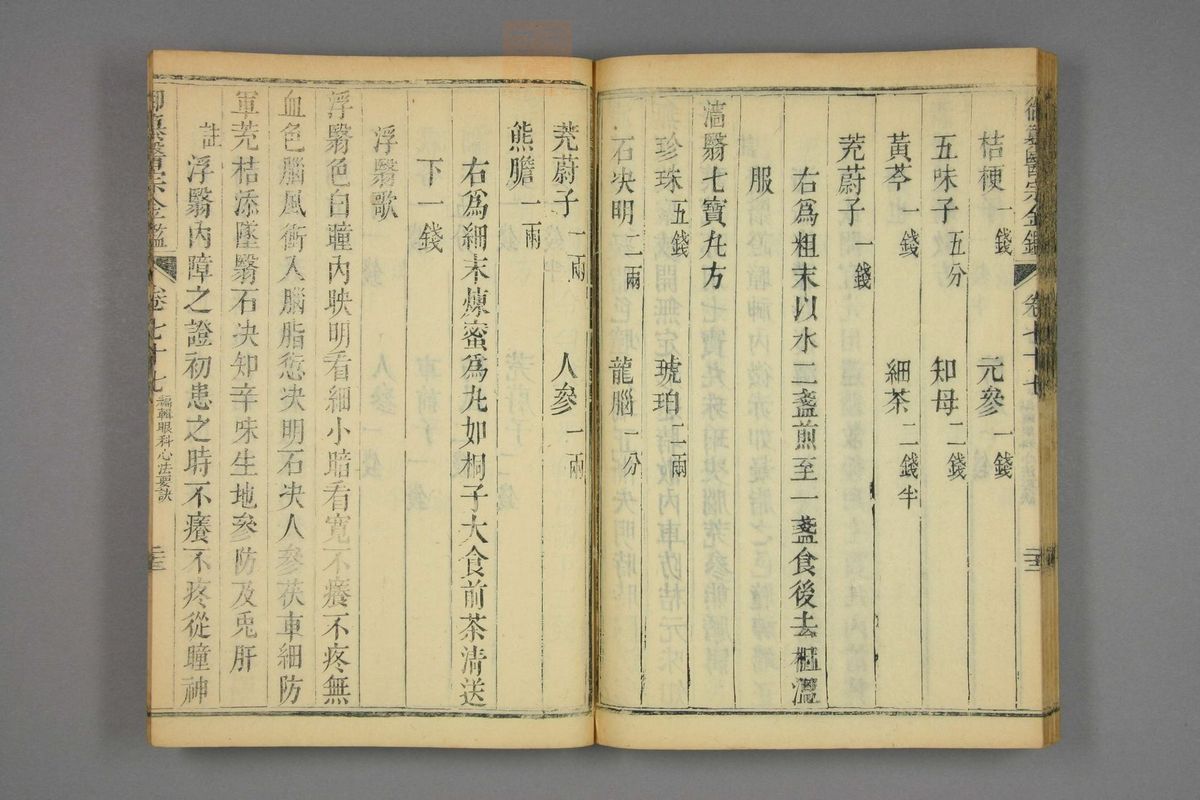 桔梗一錢 元參一錢
五味子五分 知母二錢
黃芩一錢 細茶二錢半
茺蔚子一錢
右爲粗末以水二盞煎至一盞食後去楂溫
服
濇翳七寶丸方
珍珠五錢 琥珀二兩
石決明二兩 龍腦一分
茺蔚子一兩 人參一兩
熊膽一兩
右爲細末煉蜜爲丸如桐子大食前茶清送
下一錢
浮翳歌
浮翳色白瞳內映明看細小暗看寬不癢不疼無
血色腦風衝入腦脂愆決明石決人參茯車細防
軍茺桔添墜翳石決知辛味生地參防及兎肝
註 浮翳內障之證初患之時不癢不疼從瞳神
御纂醫宗金鑑 卷七十七 編輯眼科心法要訣